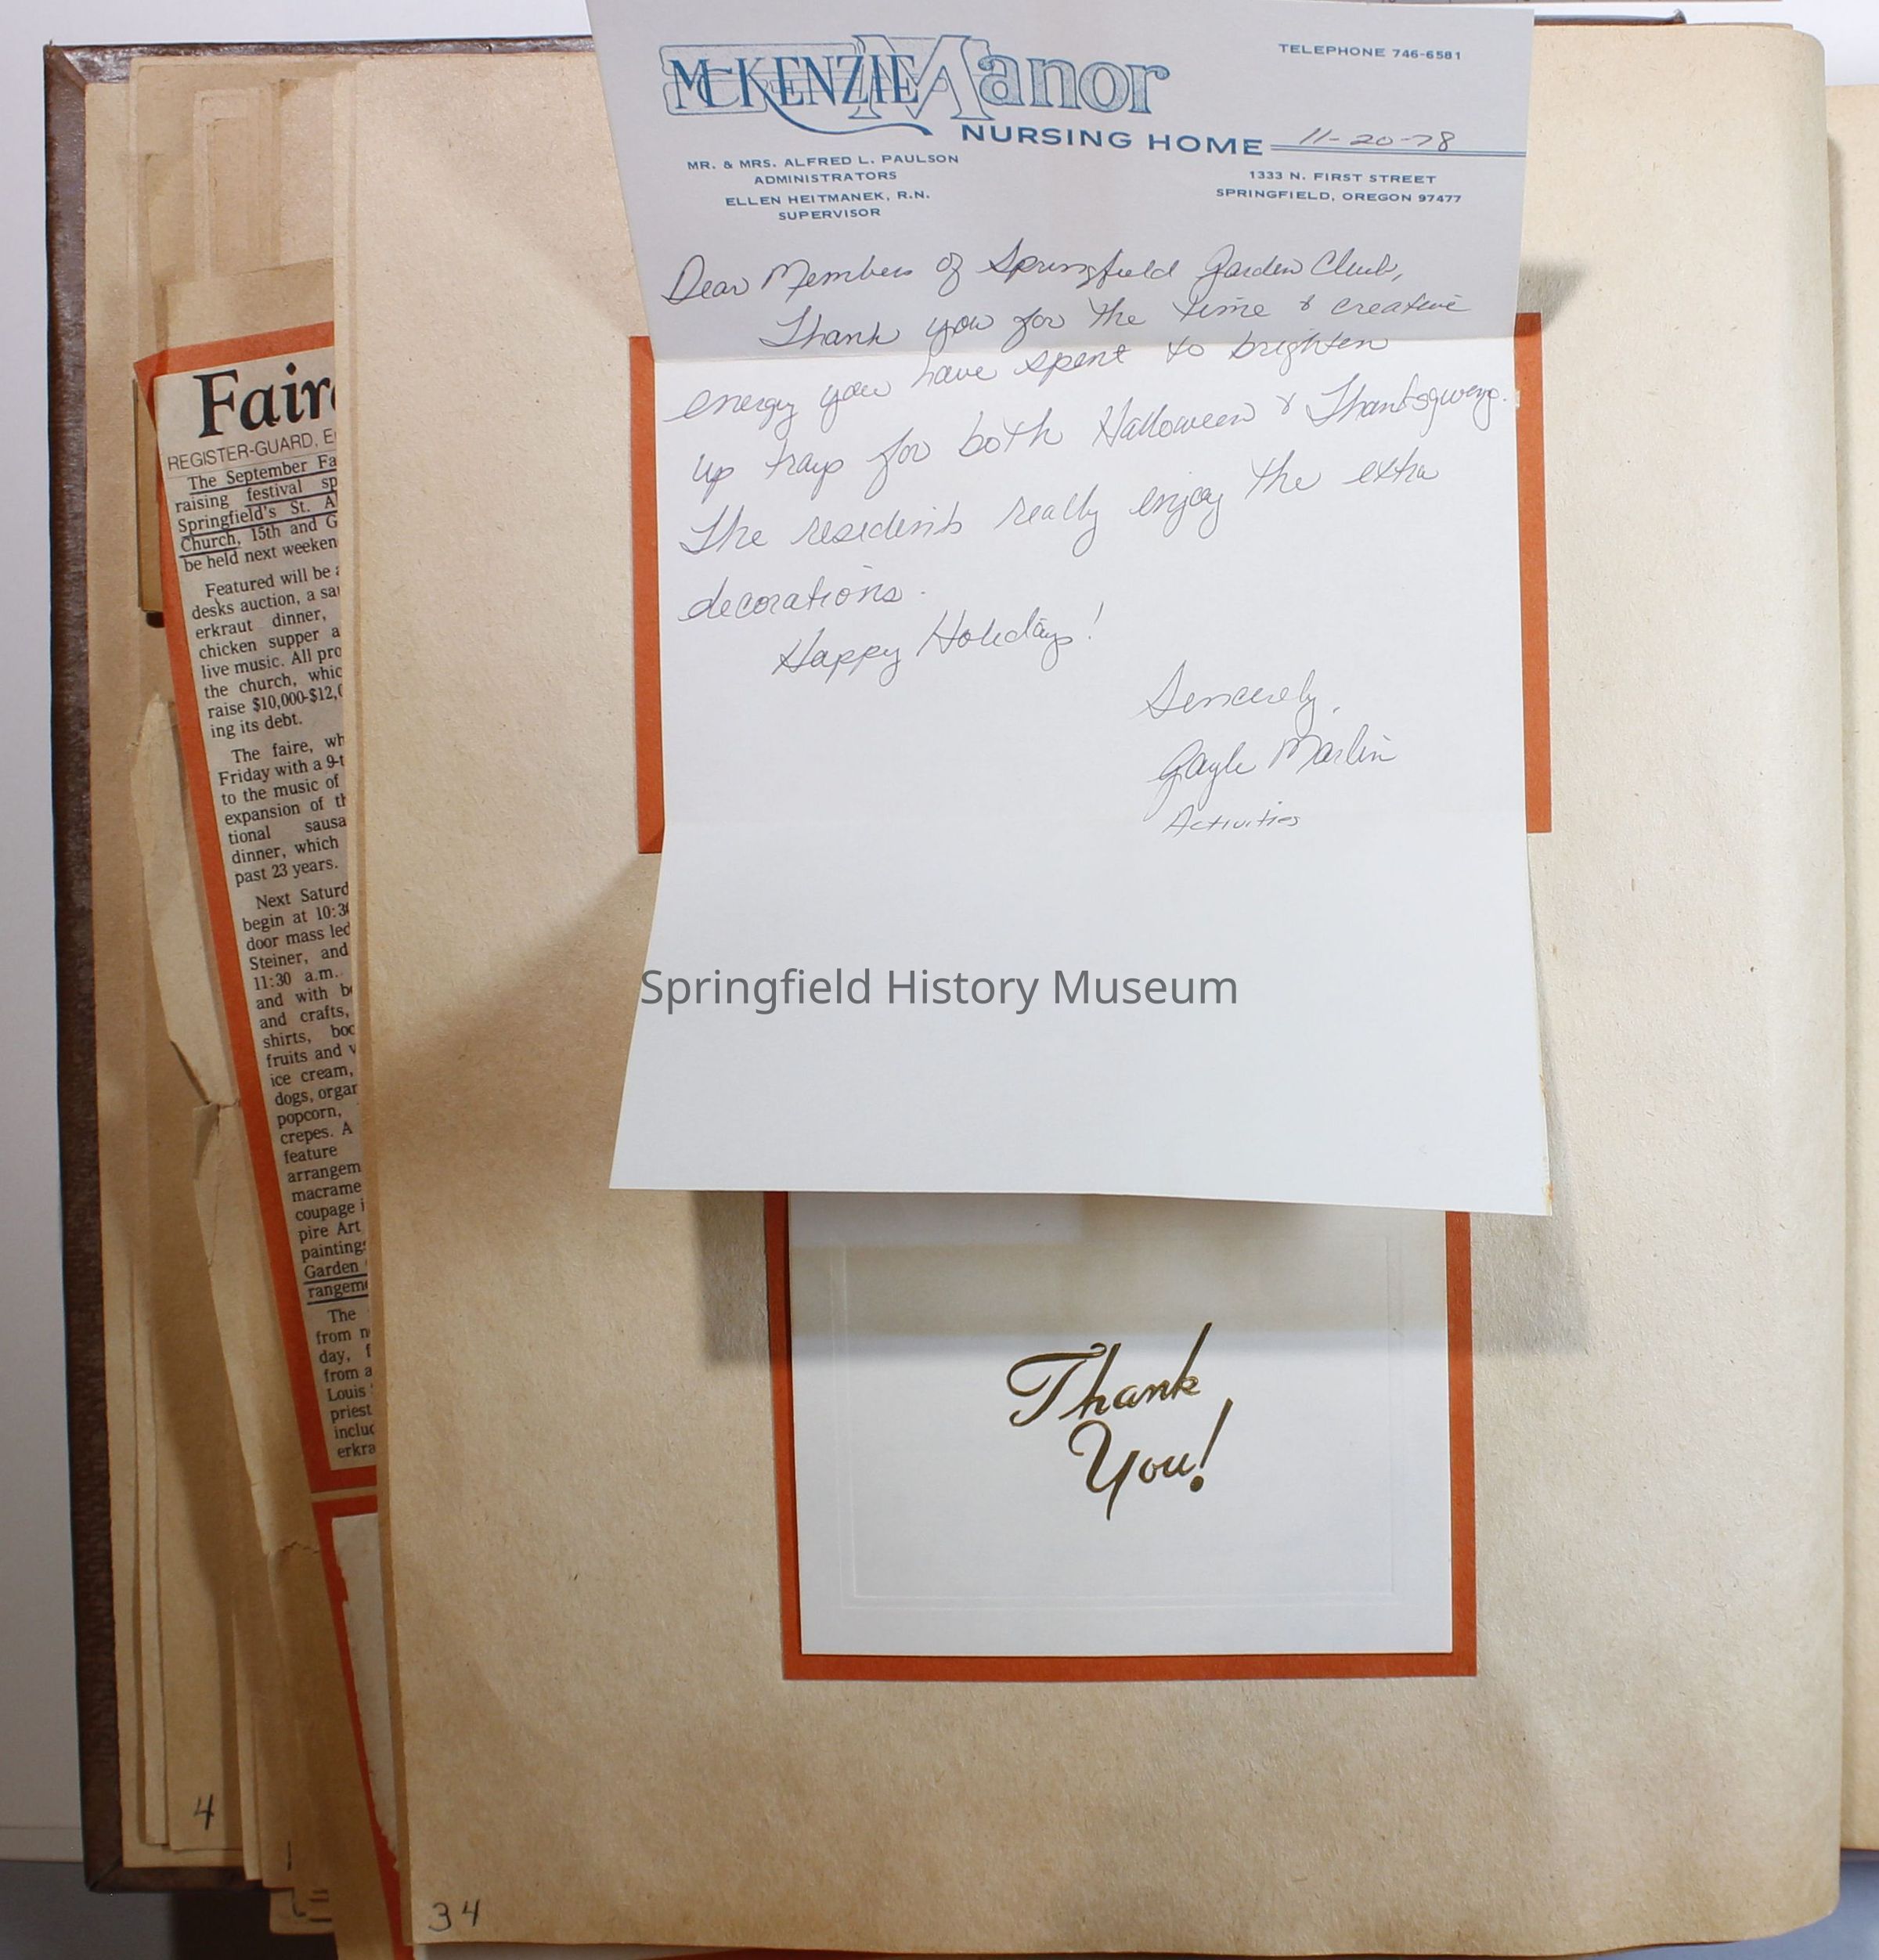 McKENZIE Manor
NURSING HOME
TELEPHONE 746-6581
11-20-78
MR. & MRS. ALFRED L. PAULSON
ADMINISTRATORS
ELLEN HEITMANEK, R.N.
SUPERVISOR
1333 N. FIRST STREET
SPRINGFIELD, OREGON 97477
Dear Members of Springfield Garden Club,
Thank you for the time & creative
energy you have spent to brighten
up trays for both Halloween & Thanksgiving.
The residents really enjoy the extra
decorations.
Happy Holidays!
Sincerely,
Gayle Marlin
Activities
Springfield History Museum
Thank
You!
34
4
Faire
REGISTER-GUARD, E
The September Fa
raising festival sp
Springfield's St. A
Church, 15th and G
be held next weeken
Featured will be a
desks auction, a sau
erkraut dinner,
chicken supper a
live music. All pro
the church, whic
raise $10,000-$12,0
ing its debt.
The faire, wh
Friday with a 9-t
to the music of
expansion of th
tional sausa
dinner, which
past 23 years.
Next Saturd
begin at 10:30
door mass led
Steiner, and
11:30 a.m.
and with be
and crafts,
shirts, boo
fruits and v
ice cream,
dogs, organ
popcorn,
crepes. A
feature
arrangem
macrame
coupage i
pire Art
paintings
Garden
rangeme
The
from n
day, f
from a
Louis
priest
includ
erkra